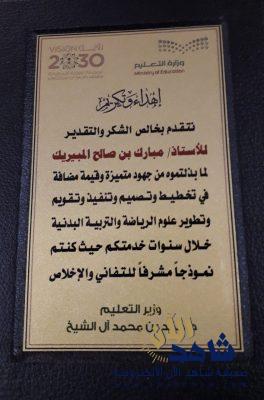 VISION رؤية
2030
وزارة التعليم
Ministry of Education
إهداء وتكريم
نتقدم بخالص الشكر والتقدير
للأستاذ/ مبارك بن صالح المبيريك
لما بذلتموه من جهود متميزة وقيمة مضافة
في تخطيط وتصميم وتنفيذ وتقويم
وتطوير علوم الرياضة والتربية البدنية
خلال سنوات خدمتكم حيث كنتم
نموذجاً مشرفاً للتفاني والإخلاص
وزير التعليم
محمد آل الشيخ
شاهد الآن
صحيفة شاهد الآن الالكترونية